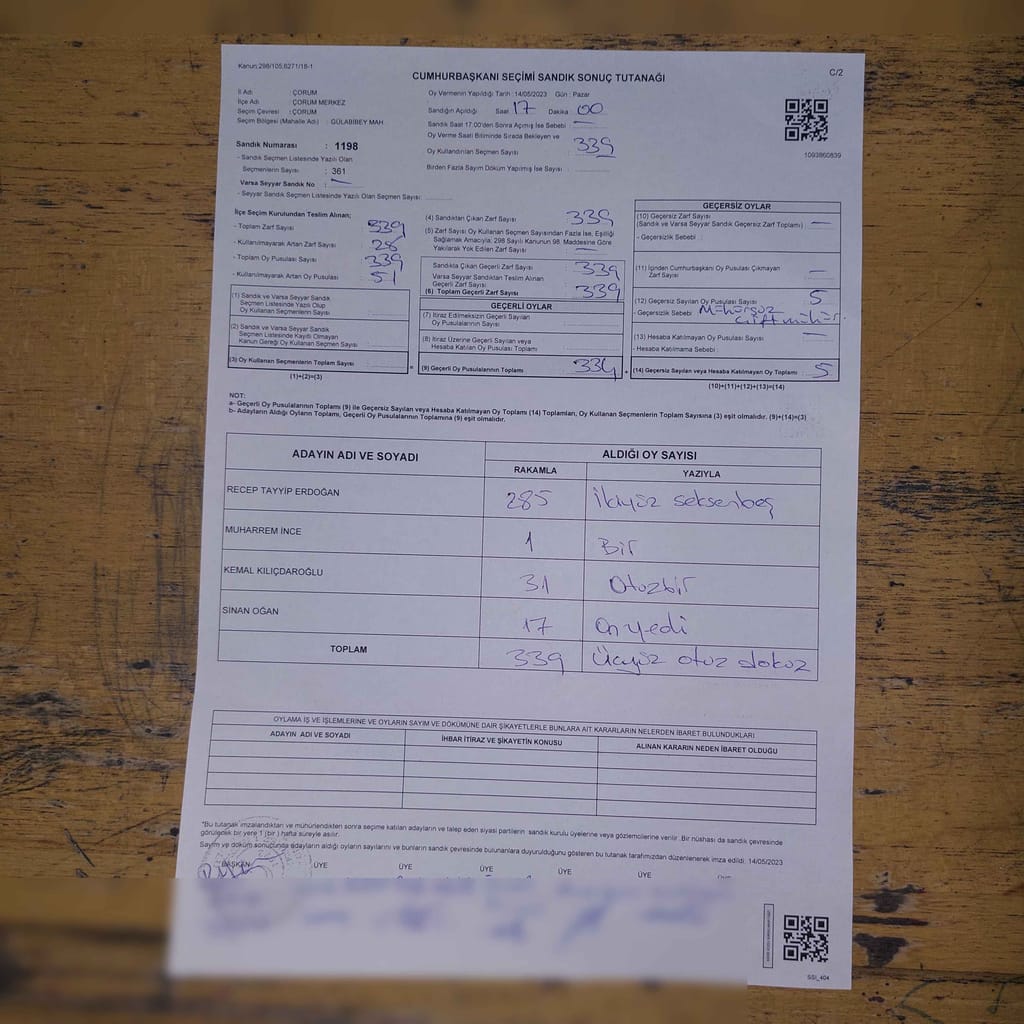 Kanun:298/105,6271/18-1
C/2
CUMHURBAŞKANI SEÇİMİ SANDIK SONUÇ TUTANAĞI
İl Adı : ÇORUM
İlçe Adı : ÇORUM MERKEZ
Seçim Çevresi : ÇORUM
Seçim Bölgesi (Mahalle Adı) : GÜLABİBEY MAH.
Sandık Numarası : 1198
- Sandık Seçmen Listesinde Yazılı Olan
Seçmenlerin Sayısı : 361
Varsa Seyyar Sandık No :
- Seyyar Sandık Seçmen Listesinde Yazılı Olan Seçmen Sayısı:
Oy Vermenin Yapıldığı Tarih : 14/05/2023 Gün : Pazar
Sandığın Açıldığı Saat 17 Dakika 00
Sandık Saat 17.00'den Sonra Açmış İse Sebebi :
Oy Verme Saati Bitiminde Sırada Bekleyen ve
Oy Kullandırılan Seçmen Sayısı : 339
Birden Fazla Sayım Döküm Yapılmış İse Sayısı :
1093860839
İlçe Seçim Kurulundan Teslim Alınan;
- Toplam Zarf Sayısı : 339
- Kullanılmayarak Artan Zarf Sayısı : 28
- Toplam Oy Pusulası Sayısı : 339
- Kullanılmayarak Artan Oy Pusulası : 51
(1) Sandık ve Varsa Seyyar Sandık
Seçmen Listesinde Yazılı Olup
Oy Kullanan Seçmenlerin Sayısı :
(2) Sandık ve Varsa Seyyar Sandık
Seçmen Listesinde Kayıtlı Olmayan
Kanun Gereği Oy Kullanan Seçmen Sayısı :
(3) Oy Kullanan Seçmenlerin Toplam Sayısı :
(1)+(2)=(3)
(4) Sandıktan Çıkan Zarf Sayısı : 339
(5) Zarf Sayısı Oy Kullanan Seçmen Sayısından Fazla İse, Eşitliği
Sağlamak Amacıyla; 298 Sayılı Kanunun 98. Maddesine Göre
Yakılarak Yok Edilen Zarf Sayısı :
Sandıkta Çıkan Geçerli Zarf Sayısı : 339
Varsa Seyyar Sandıktan Teslim Alınan
Geçerli Zarf Sayısı :
(6) Toplam Geçerli Zarf Sayısı : 339
GEÇERLİ OYLAR
(7) İtiraz Edilmeksizin Geçerli Sayılan
Oy Pusulalarının Sayısı :
(8) İtiraz Üzerine Geçerli Sayılan veya
Hesaba Katılan Oy Pusulası Toplamı :
(9) Geçerli Oy Pusulalarının Toplamı : 334
GEÇERSİZ OYLAR
(10) Geçersiz Zarf Sayısı
(Sandık ve Varsa Seyyar Sandık Geçersiz Zarf Toplamı) :
- Geçersizlik Sebebi :
(11) İçinden Cumhurbaşkanı Oy Pusulası Çıkmayan
Zarf Sayısı :
(12) Geçersiz Sayılan Oy Pusulası Sayısı : 5
- Geçersizlik Sebebi : Mühürsüz
Çift mühür.
(13) Hesaba Katılmayan Oy Pusulası Sayısı :
- Hesaba Katılmama Sebebi :
(14) Geçersiz Sayılan veya Hesaba Katılmayan Oy Toplamı : 5
(10)+(11)+(12)+(13)=(14)
NOT:
a- Geçerli Oy Pusulalarının Toplamı (9) ile Geçersiz Sayılan veya Hesaba Katılmayan Oy Toplamı (14) Toplamları, Oy Kullanan Seçmenlerin Toplam Sayısına (3) eşit olmalıdır. (9)+(14)=(3)
b- Adayların Aldığı Oyların Toplamı, Geçerli Oy Pusulalarının Toplamına (9) eşit olmalıdır.
ADAYIN ADI VE SOYADI ALDIĞI OY SAYISI
RAKAMLA YAZIYLA
RECEP TAYYİP ERDOĞAN 285 İkiyüz seksenbeş
MUHARREM İNCE 1 Bir
KEMAL KILIÇDAROĞLU 31 Otuzbir
SİNAN OĞAN 17 Onyedi
TOPLAM 339 Üçyüz otuz dokuz
OYLAMA İŞ VE İŞLEMLERİNE VE OYLARIN SAYIM VE DÖKÜMÜNE DAİR ŞİKAYETLERLE BUNLARA AİT KARARLARIN NELERDEN İBARET BULUNDUKLARI
ADAYIN ADI VE SOYADI İHBAR İTİRAZ VE ŞİKAYETİN KONUSU ALINAN KARARIN NEDEN İBARET OLDUĞU
"Bu tutanak imzalandıktan ve mühürlendikten sonra seçime katılan adayların ve talep eden siyasi partilerin sandık kurulu üyelerine veya gözlemcilerine verilir. Bir nüshası da sandık çevresinde
görülecek bir yere 1 (bir) hafta süreyle asılır.
Sayım ve döküm sonucunda adayların aldığı oyların sayılarını ve bunların sandık çevresinde bulunanlara duyurulduğunu gösteren bu tutanak tarafımızdan düzenlenerek imza edildi. 14/05/2023
BAŞKAN ÜYE ÜYE ÜYE ÜYE ÜYE ÜYE
SSI_404